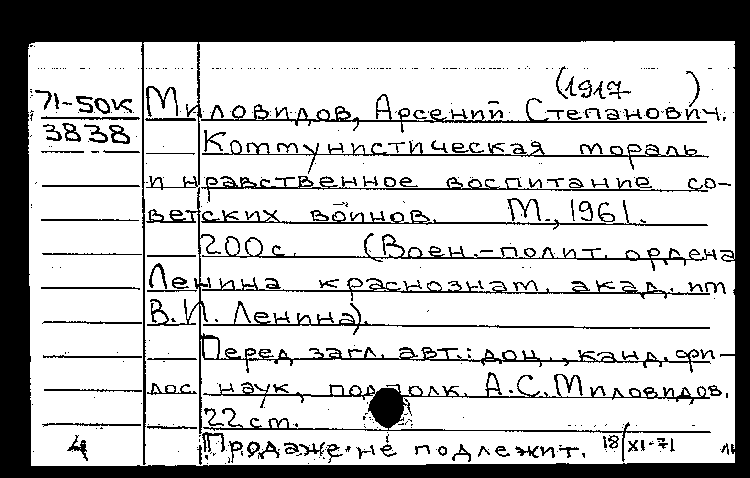 (1917- )
71-50К Миловидов, Арсений Степанович.
3838 Коммунистическая мораль
и нравственное воспитание со-
ветских воинов. М., 1961.
200 с. (Воен.-полит. ордена
Ленина краснознам. акад. им.
В.И. Ленина).
Перед загл. авт.: доц., канд. фи-
лос. наук, подполк. А.С. Миловидов.
22 cm.
Продаже не подлежит. 18/XI-71